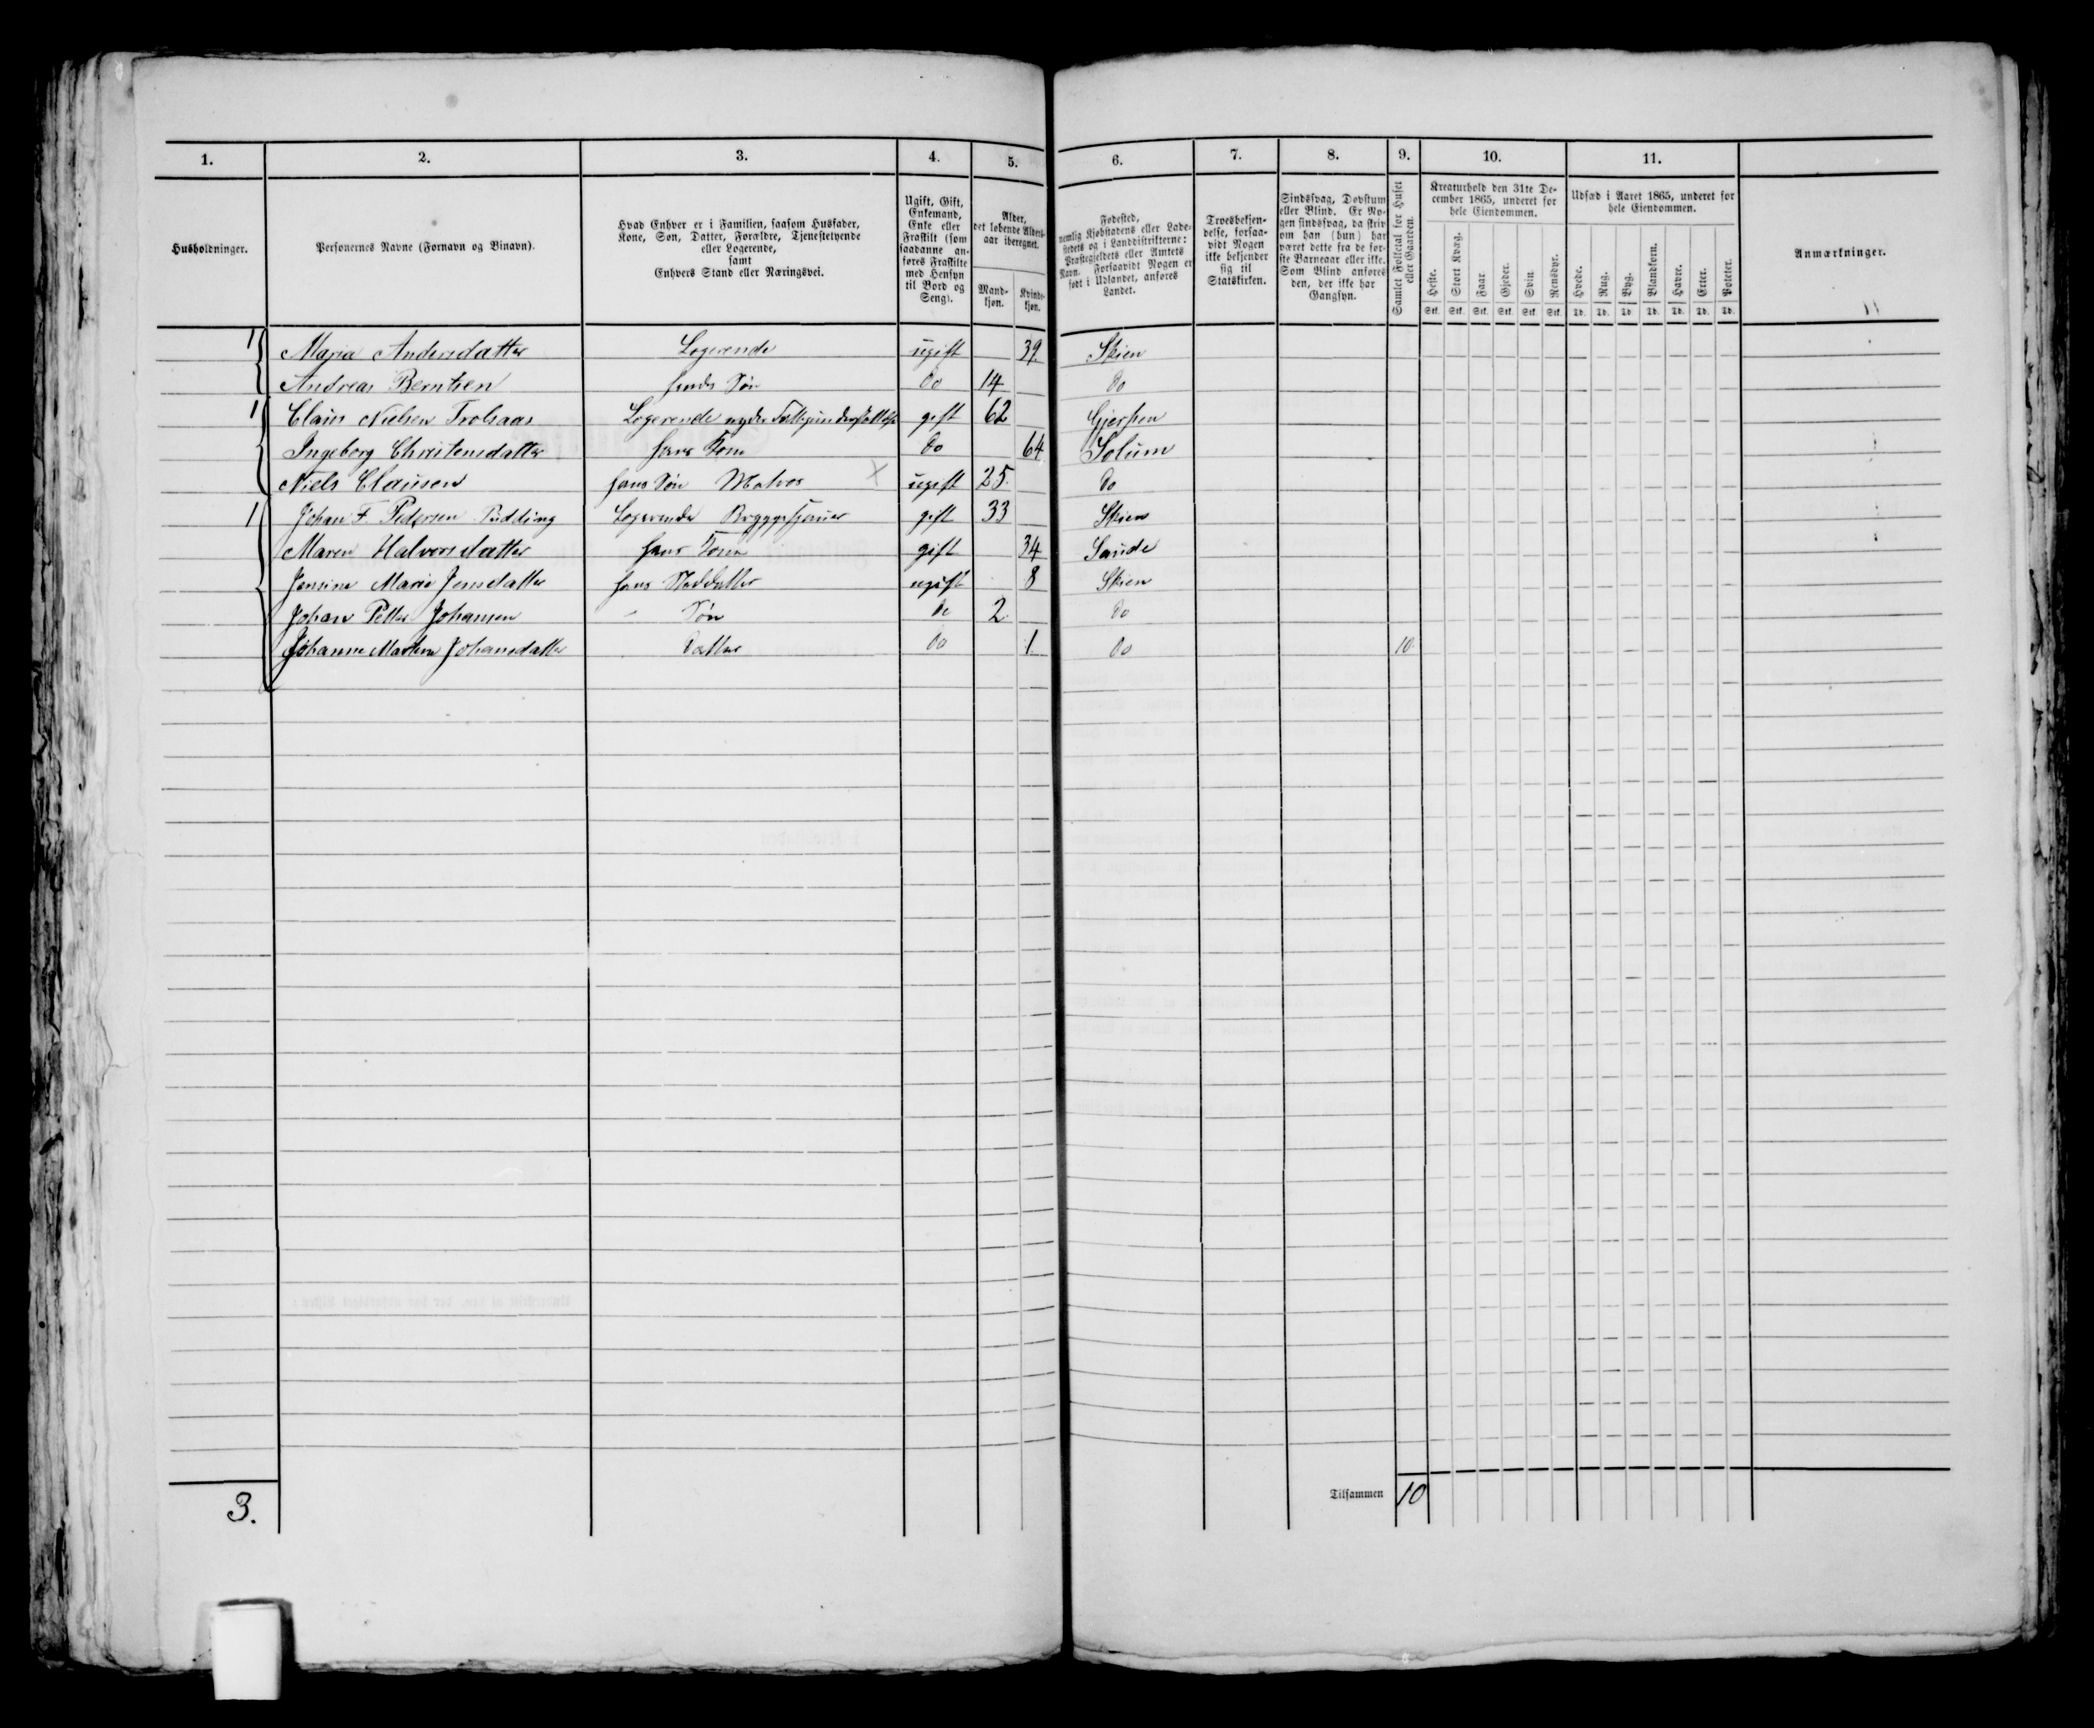 1. 2. 3. 4. 5. 6. 7. 8. 9. 10. 11.
Husholdninger.
Personernes Navne (Fornavn og Binavn).
Hvad Enhver er i Familien, saasom Husfader,
Kone, Søn, Datter, Forældre, Tjenstetyende
eller Logerende,
samt
Enhvers Stand eller Næringsvei.
Ugift, Gift,
Enkemand,
Enke eller
Fraskilt (som
saadanne an-
føres Fraskilte
med Hensyn
til Bord og
Seng).
Alder,
det løbende Alders-
aar iberegnet.
Mand-
kjøn.
Kvinde-
kjøn.
Fødested,
nemlig Kjøbstadens eller Lade-
stedets og i Landdistrikterne:
Præstegjeldets eller Amtets
Navn. Forsaavidt Nogen er
født i Udlandet, anføres
Landet.
Troesbekjen-
delse, forsaa-
vidt Nogen
ikke bekjender
sig til
Statskirken.
Sindssvag, Døvstum
eller Blind. Er No-
gen sindssvag, da skriv
om han (hun) har
været dette fra de før-
ste Barneaar eller ikke.
Som Blind anføres
den, der ikke har
Gangsyn.
Samlet Folketal for Huset
eller Gaarden.
Kreaturhold den 31te De-
cember 1865, underet for
hele Eiendommen.
Heste. Stort Kvæg. Faar. Gjeder. Svin. Rensdyr.
Stk. Stk. Stk. Stk. Stk. Stk.
Udsæd i Aaret 1865, underet for
hele Eiendommen.
Hvede. Rug. Byg. Blandkorn. Havre. Erter. Poteter.
Td. Td. Td. Td. Td. Td. Td.
Anmærkninger.
1 Maria Andersdatter Logerende ugift 39 Skien
Andreas Berntsen hendes Søn do 14 do
1 Claus Nielsen Trolsaas Logerende nyder Fattigunderstøttelse gift 62 Gjerpen
Ingeborg Christensdatter hans Kone do 64 Solum
Niels Clausen hans Søn Matros x ugift 25. do
1 Johan F Pedersen Pudding Logerende Bryggesjouer gift 33 Skien
Maren Halvorsdatter hans Kone gift 34 Saude
Jensine Marie Jensdatter hans Steddatter ugift 8 Skien
Johan Petter Johansen " Søn do 2 do
Johanne Martine Johansdatter Datter do 1 do 10.
3.
Tilsammen 10